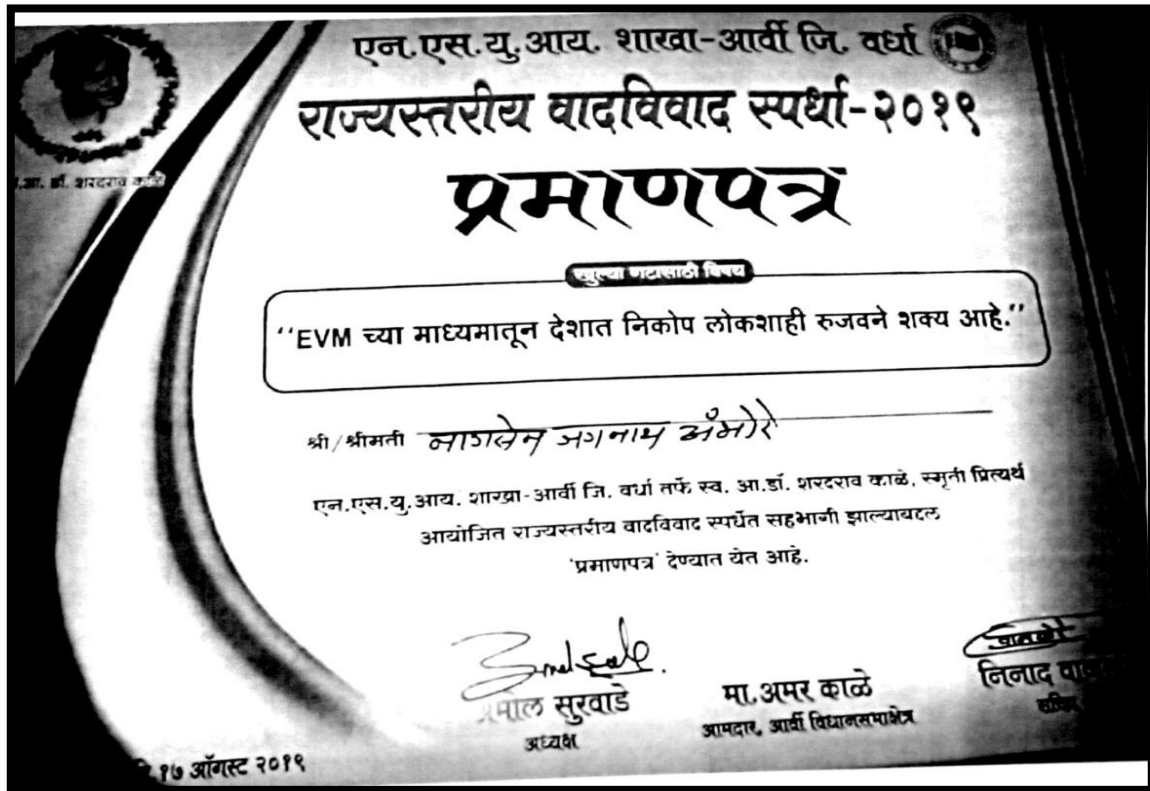 एन.एस.यु.आय. शाखा-आर्वी जि. वर्धा
राज्यस्तरीय वादविवाद स्पर्धा-२०१९
आ. डॉ. शरदराव काळे
प्रमाणपत्र
खुल्या गटासाठी विषय
''EVM च्या माध्यमातून देशात निकोप लोकशाही रुजवने शक्य आहे.''
श्री/श्रीमती नागसेन जगनाथ अंभोरे
एन.एस.यु.आय. शाखा-आर्वी जि. वर्धा तर्फे स्व. आ.डॉ. शरदराव काळे, स्मृती प्रित्यर्थ
आयोजित राज्यस्तरीय वादविवाद स्पर्धेत सहभागी झाल्याबद्दल
'प्रमाणपत्र' देण्यात येत आहे.
सुरवाडे
अध्यक्ष
मा.अमर काळे
आमदार, आर्वी विधानसभाक्षेत्र
निनाद
१७ ऑगस्ट २०१९